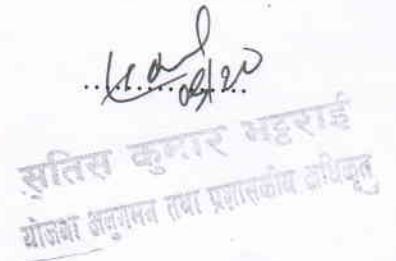 ०९/२०
सतिस कुमार भट्टराई
योजना अनुगमन तथा प्रशासकीय अधिकृत